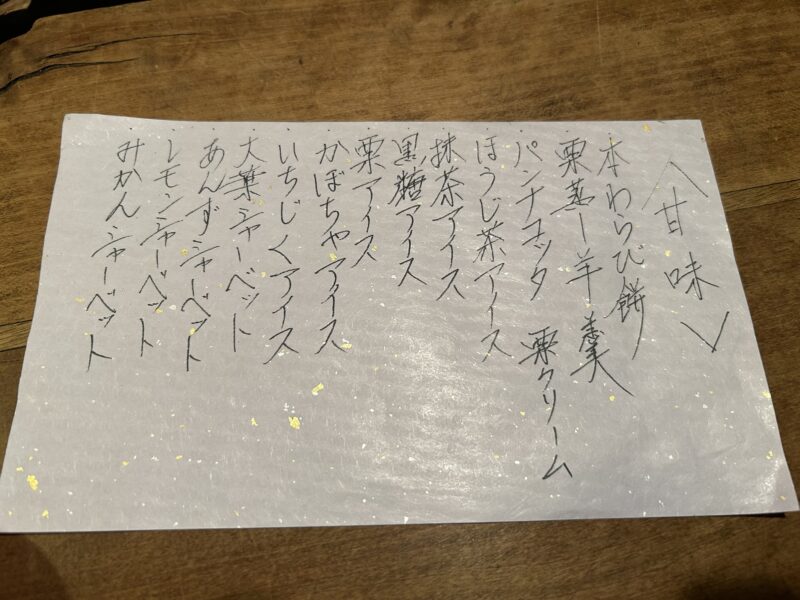 〈甘味〉
本わらび餅
栗蒸し羊羹
パンナコッタ 栗クリーム
ほうじ茶アイス
抹茶アイス
黒糖アイス
栗アイス
かぼちゃアイス
いちじくアイス
大葉シャーベット
あんずシャーベット
レモンシャーベット
みかんシャーベット